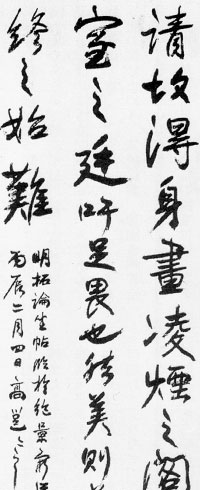 請故得身畫凌煙之閣
室之廷吁足畏也然美則
終之始難
明拓論坐帖臨於絕景窮
丙辰二月四日高邕之